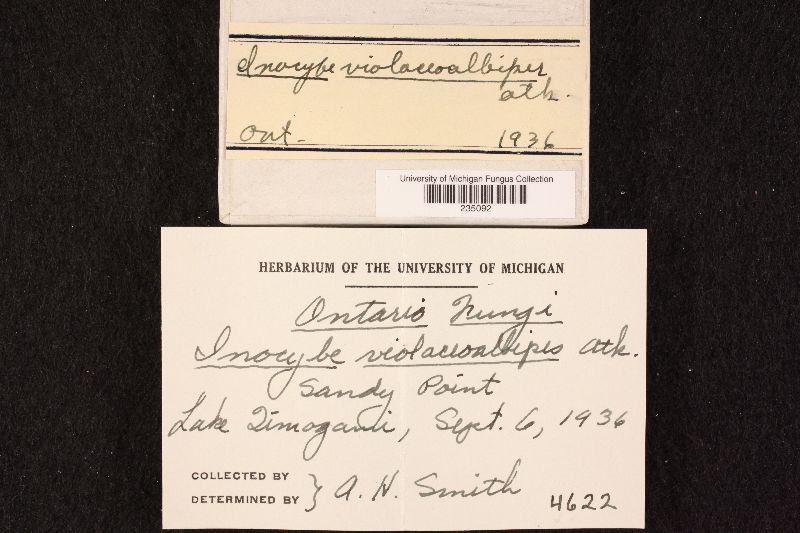 Inocybe violaceoalbipes
Atk.
Ont. 1936
University of Michigan Fungus Collection
235092
HERBARIUM OF THE UNIVERSITY OF MICHIGAN
Ontario Fungi
Inocybe violaceoalbipes Atk.
Sandy Point
Lake Timagami, Sept. 6, 1936
COLLECTED BY
DETERMINED BY } A. H. Smith
4622